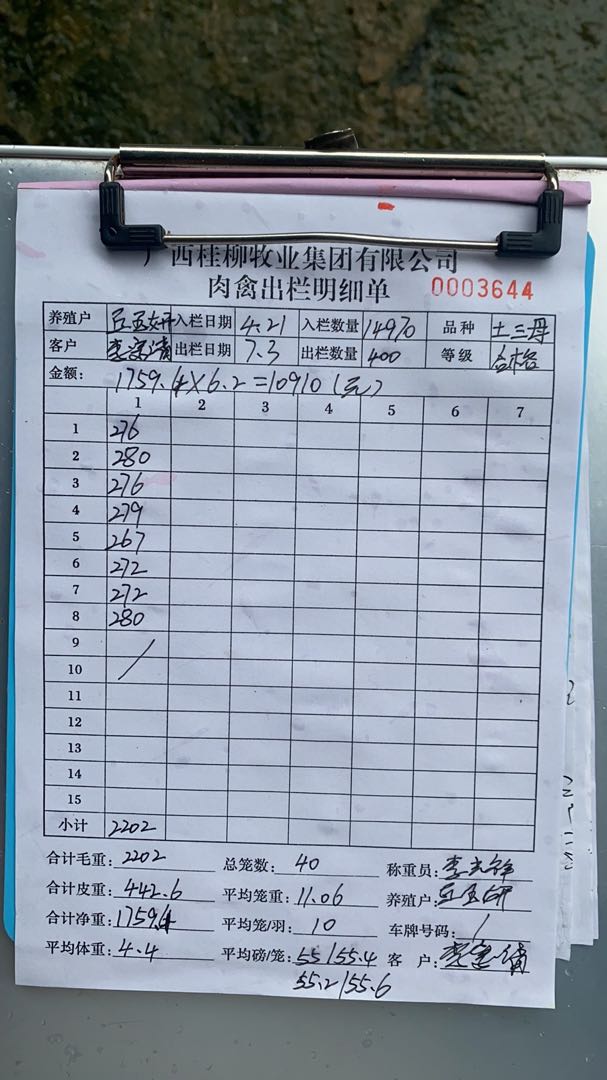 广西桂柳牧业集团有限公司
肉禽出栏明细单 0003644
养殖户 入栏日期 4.21 入栏数量 14970 品种 土三母
客户 出栏日期 7.3 出栏数量 400 等级 合格
金额: 1759.4×6.2=10910(元)
1 2 3 4 5 6 7
1 276
2 280
3 276
4 279
5 267
6 272
7 272
8 280
9
10 /
11
12
13
14
15
小计 2202
合计毛重: 2202 总笼数: 40 称重员:
合计皮重: 442.6 平均笼重: 11.06 养殖户:
合计净重: 1759.4 平均笼/羽: 10 车牌号码: /
平均体重: 4.4 平均磅/笼: 55/55.4 客 户:
55.2/55.6